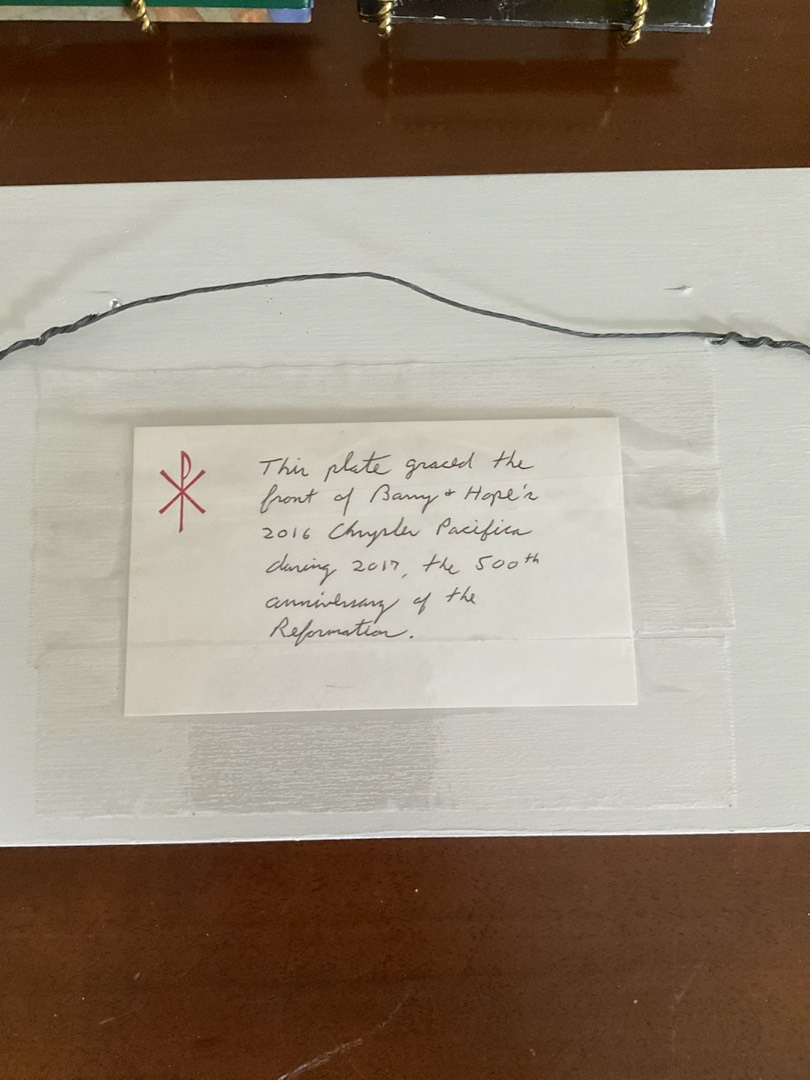 This plate graced the
front of Barry + Hope's
2016 Chrysler Pacifica
during 2017, the 500th
anniversary of the
Reformation.